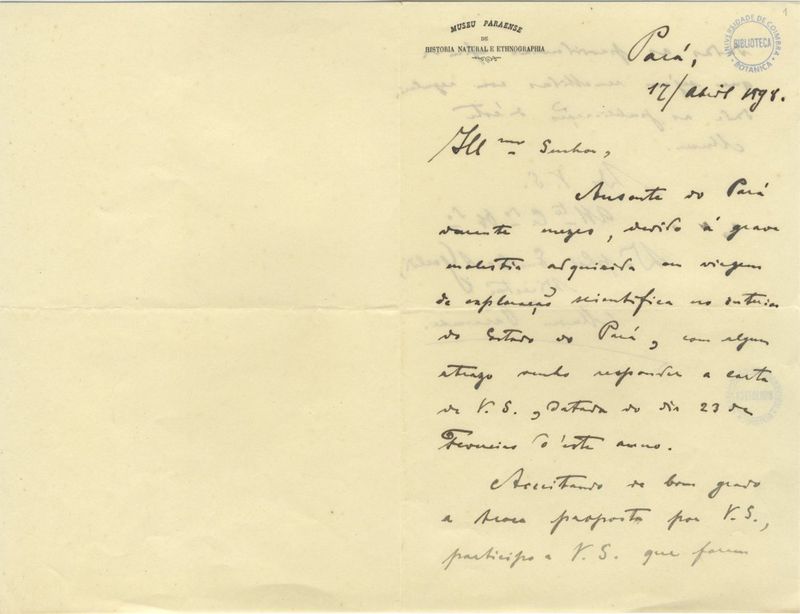 1
MUSEU PARAENSE
DE
HISTORIA NATURAL E ETHNOGRAPHIA
UNIVERSIDADE DE COIMBRA
BIBLIOTECA
BOTANICA
Pará,
17/Abril 1898.
Ill mo Senhor,
Ausente do Pará
durante mezes, devido á grave
molestia adquirida em viagem
de exploração scientifica no interior
do Estado do Pará, com algum
atrazo venho responder a carta
de V. S., datada do dia 23 de
Fevereiro d'este anno.
Acceitando de bom grado
a troca proposta por V. S.,
participo a V. S. que foram